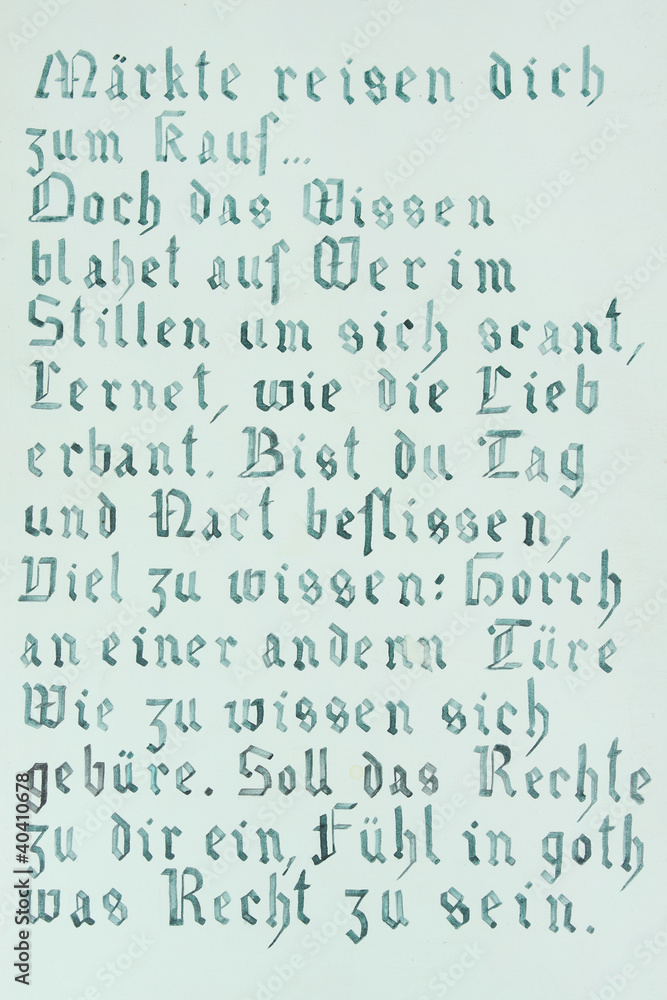 Märkte reisen dich
zum Kauf...
Doch das Wissen
blahet auf Wer im
Stillen um sich scant,
Lernet, wie die Lieb
erbant. Bist du Tag
und Nact beflissen,
Viel zu wissen: Horrh
an einer andenn Türe
Wie zu wissen sich
gebüre. Soll das Rechte
zu dir ein, Fühl in goth
was Recht zu sein.
Adobe Stock | #40410678